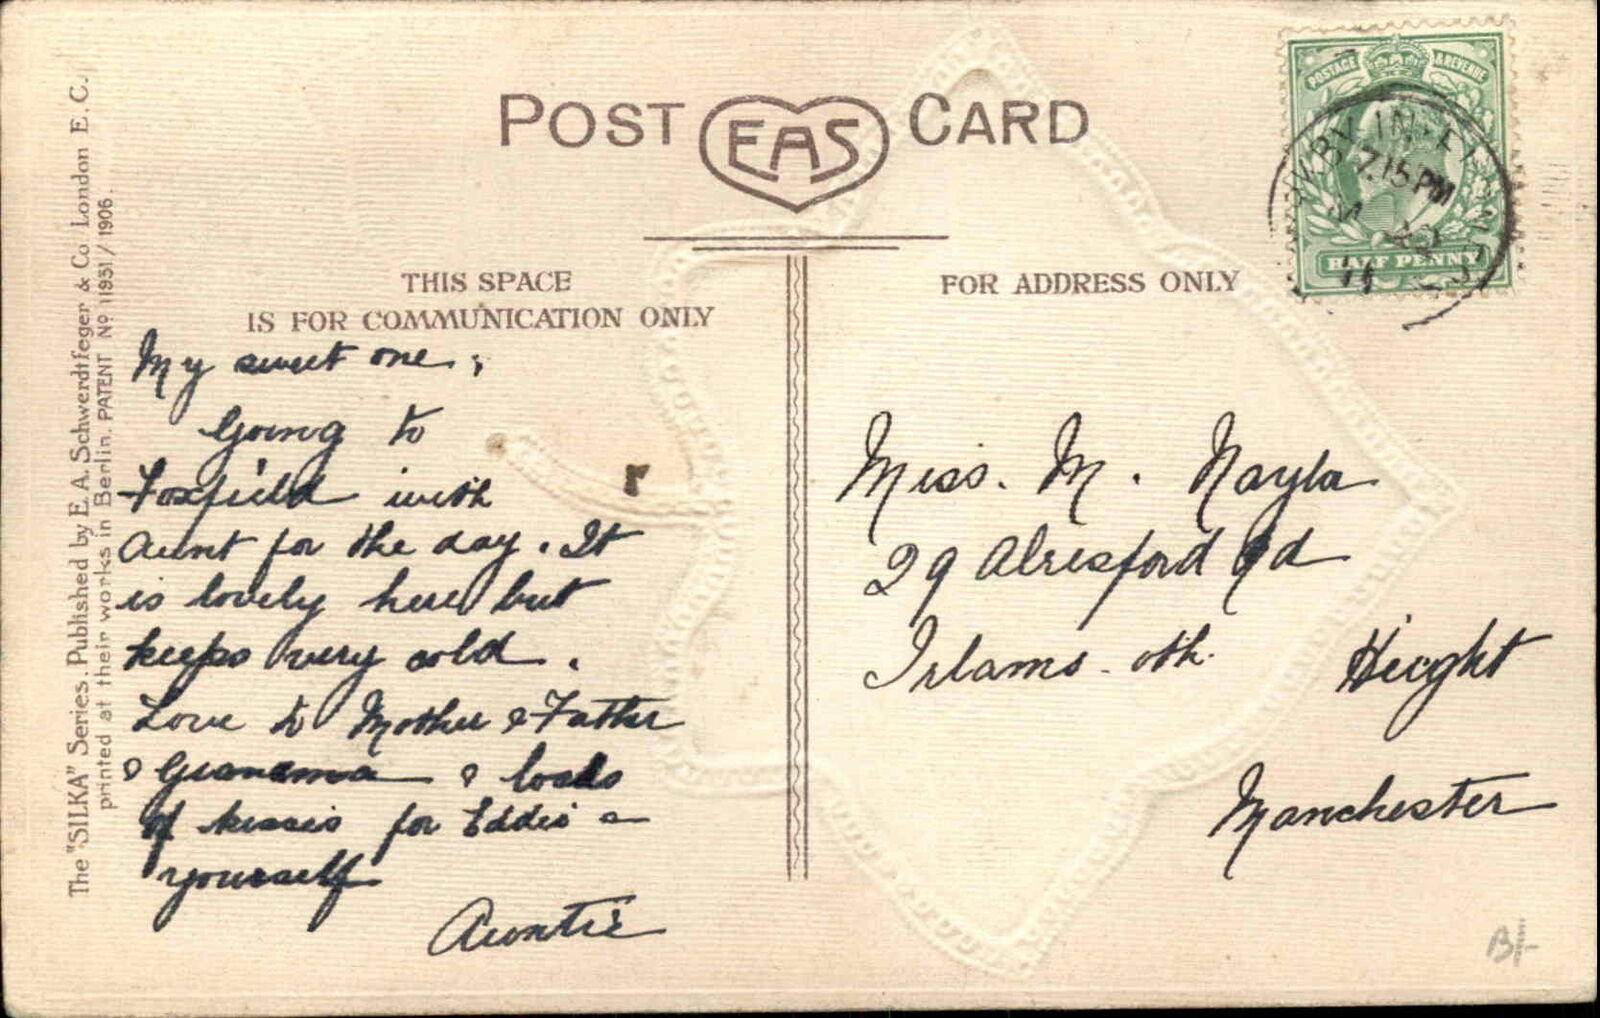 The "SILKA" Series. Published by E. A. Schwerdtfeger & Co London E. C.
printed at their works in Berlin. PATENT No 11951/1906.
POST EAS CARD
THIS SPACE
IS FOR COMMUNICATION ONLY
FOR ADDRESS ONLY
POSTAGE & REVENUE
HALF PENNY
KIRKBY-IN-FURNESS
7.15 PM
11
My sweet one,
Going to
Foxfield with
Aunt for the day. It
is lovely here but
keeps very cold.
Love to Mother & Father
& Grandma & loads
of kisses for Eddie &
yourself
Auntie
Miss. M. Nayla
29 Alresford Rd
Irlams-oth. Hieght
Manchester
B/-